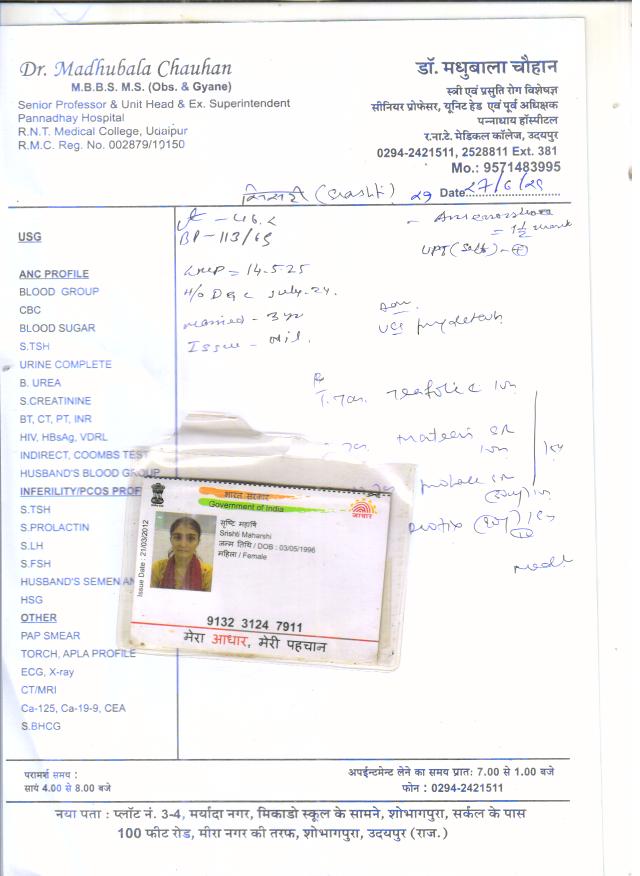 Dr. Madhubala Chauhan
M.B.B.S. M.S. (Obs. & Gyane)
Senior Professor & Unit Head & Ex. Superintendent
Pannadhay Hospital
R.N.T. Medical College, Udaipur
R.M.C. Reg. No. 002879/10150
डॉ. मधुबाला चौहान
स्त्री एवं प्रसुति रोग विशेषज्ञ
सीनियर प्रोफेसर, यूनिट हेड एवं पूर्व अधिक्षक
पन्नाधाय हॉस्पीटल
र.ना.टे. मेडिकल कॉलेज, उदयपुर
0294-2421511, 2528811 Ext. 381
Mo.: 9571483995
29 Date 27/6/25
- 46.2
BP - 113/65
= 1½ month
UPT (Self) - +
LMP = 14.5.25
H/O D&C July-24.
married - 3 yr
Issue - Nil.
Adv.
USG
USG
ANC PROFILE
BLOOD GROUP
CBC
BLOOD SUGAR
S.TSH
URINE COMPLETE
B. UREA
S.CREATININE
BT, CT, PT, INR
HIV, HBsAg, VDRL
INDIRECT, COOMBS TEST
HUSBAND'S BLOOD GROUP
INFERILITY/PCOS PROF
S.TSH
S.PROLACTIN
S.LH
S.FSH
HUSBAND'S SEMEN AN
HSG
OTHER
PAP SMEAR
TORCH, APLA PROFILE
ECG, X-ray
CT/MRI
Ca-125, Ca-19-9, CEA
S.BHCG
Rx
SR
भारत सरकार
Government of India
आधार
Issue Date : 21/03/2012
सृष्टि महर्षि
Srishti Maharshi
जन्म तिथि / DOB : 03/05/1996
महिला / Female
9132 3124 7911
मेरा आधार, मेरी पहचान
परामर्श समय :
सायं 4.00 से 8.00 बजे
अपॉईन्टमेन्ट लेने का समय प्रातः 7.00 से 1.00 बजे
फोन : 0294-2421511
नया पता : प्लॉट नं. 3-4, मर्यादा नगर, मिकाडो स्कूल के सामने, शोभागपुरा, सर्कल के पास
100 फीट रोड, मीरा नगर की तरफ, शोभागपुरा, उदयपुर (राज.)